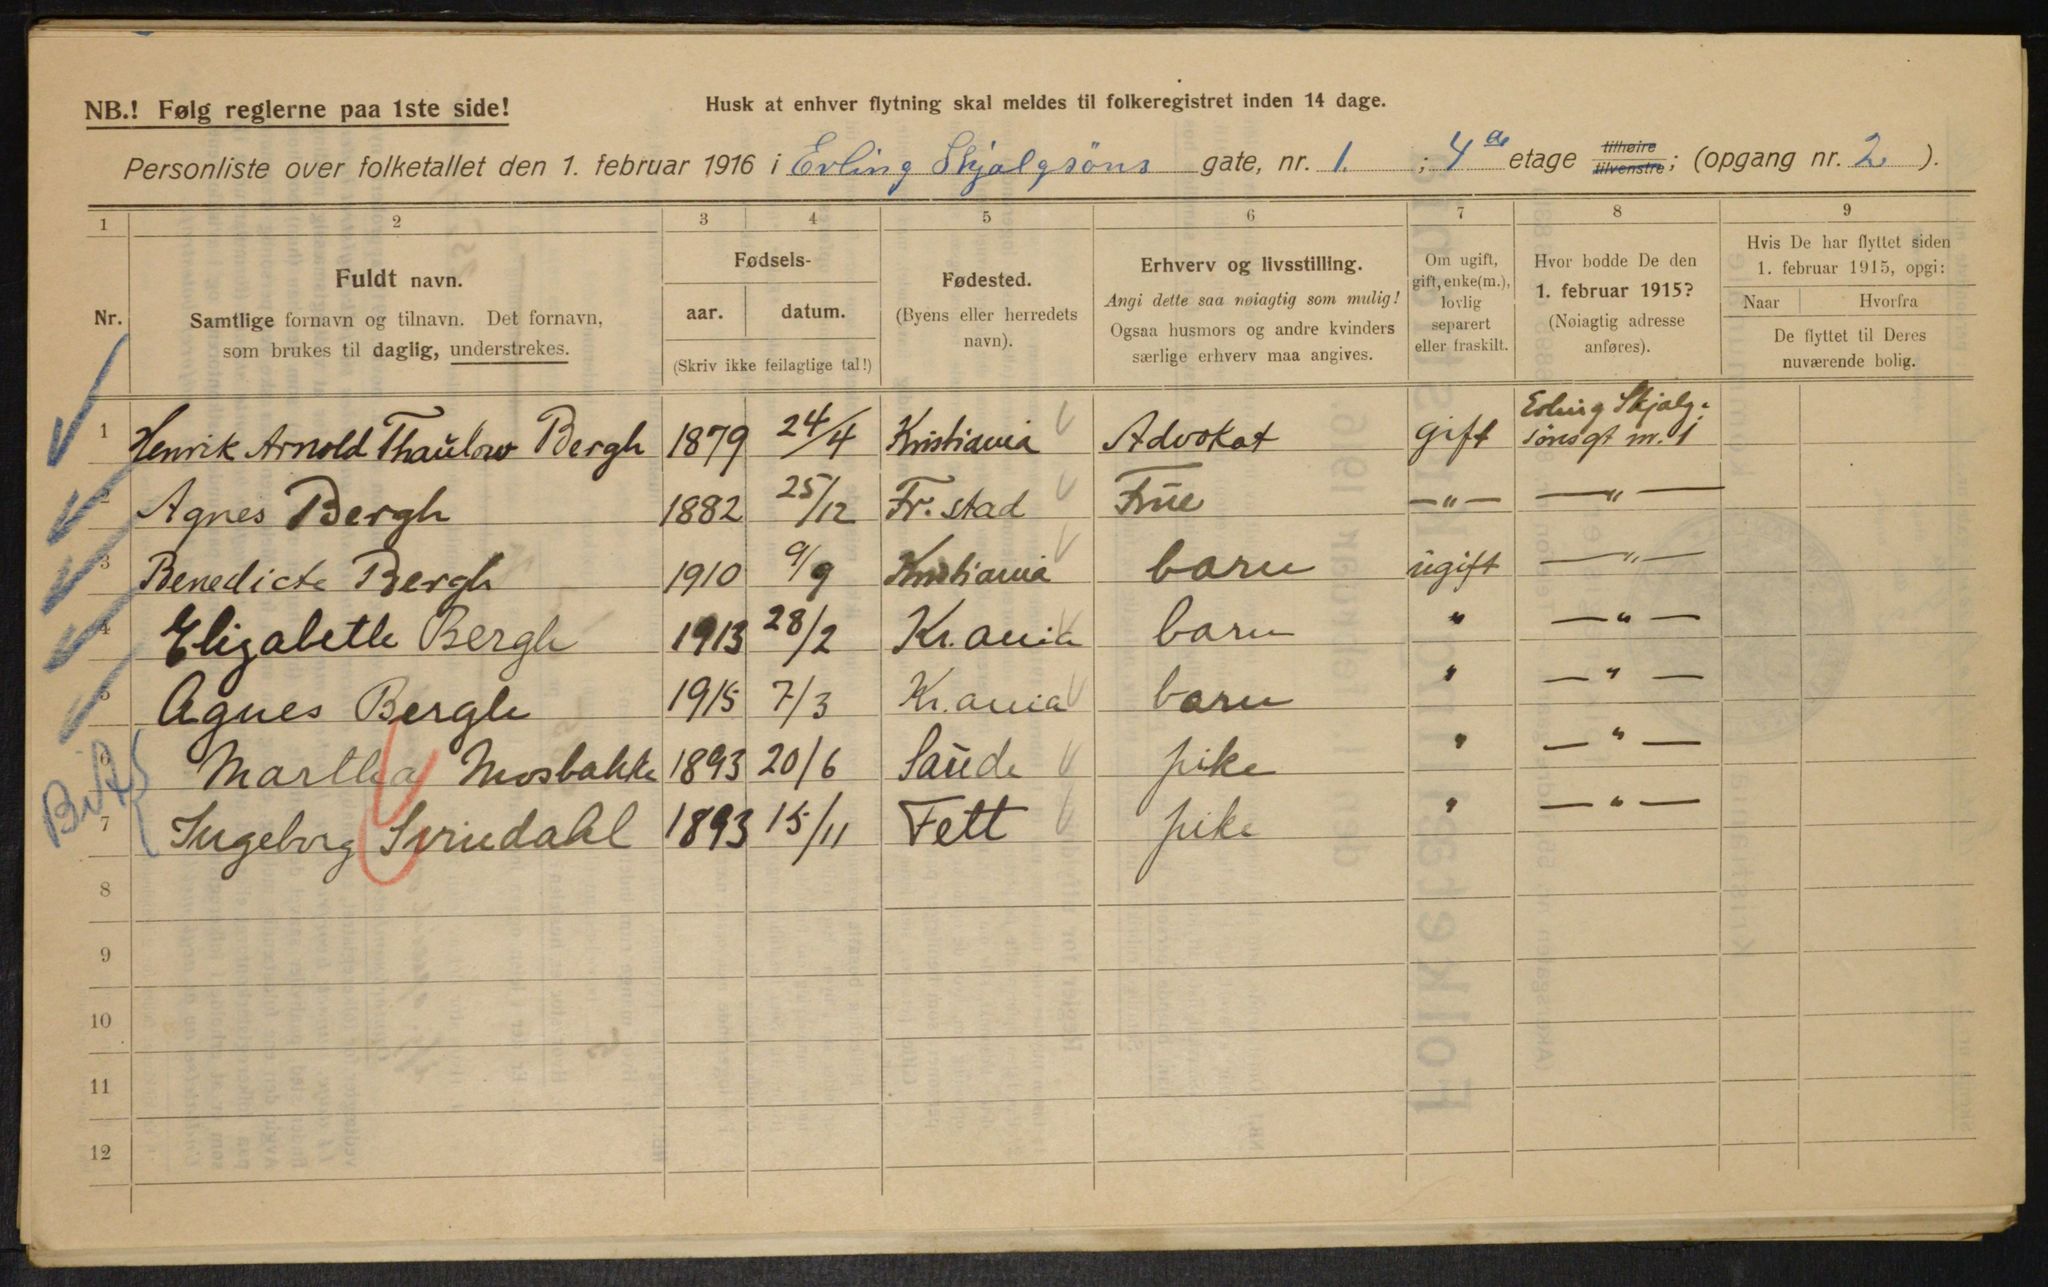 NB.! Følg reglerne paa 1ste side!
Husk at enhver flytning skal meldes til folkeregistret inden 14 dage.
Personliste over folketallet den 1. februar 1916 i Erling Skjalgsöns gate, nr. 1. ; 4de etage tilhøire tilvenstre; (opgang nr. 2 ).
1 2 3 4 5 6 7 8 9
Nr.
Fuldt navn.
Samtlige fornavn og tilnavn. Det fornavn,
som brukes til daglig, understrekes.
Fødsels-
aar. datum.
(Skriv ikke feilagtige tal!)
Fødested.
(Byens eller herredets
navn).
Erhverv og livsstilling.
Angi dette saa nøiagtig som mulig!
Ogsaa husmors og andre kvinders
særlige erhverv maa angives.
Om ugift,
gift, enke(m.),
lovlig
separert
eller fraskilt.
Hvor bodde De den
1. februar 1915?
(Nøiagtig adresse
anføres).
Hvis De har flyttet siden
1. februar 1915, opgi:
Naar Hvorfra
De flyttet til Deres
nuværende bolig.
1 Henrik Arnold Thaulow Bergh 1879 24/4 Kristiania Advokat gift Erling Skjalg-
sönsgt nr. 1
2 Agnes Bergh 1882 25/12 Fr.stad Frue —"— —"—
3 Benedicte Bergh 1910 9/9 Kristiania barn ugift —"—
4 Elizabeth Bergh 1913 28/2 Kr.ania barn " —"—
5 Agnes Bergh 1915 7/3 Kr.ania barn " —"—
6 Martha Mosbakke 1893 20/6 Saude pike " —"—
7 Ingeborg Svindahl 1893 15/11 Fett pike " —"—
8
9
10
11
12